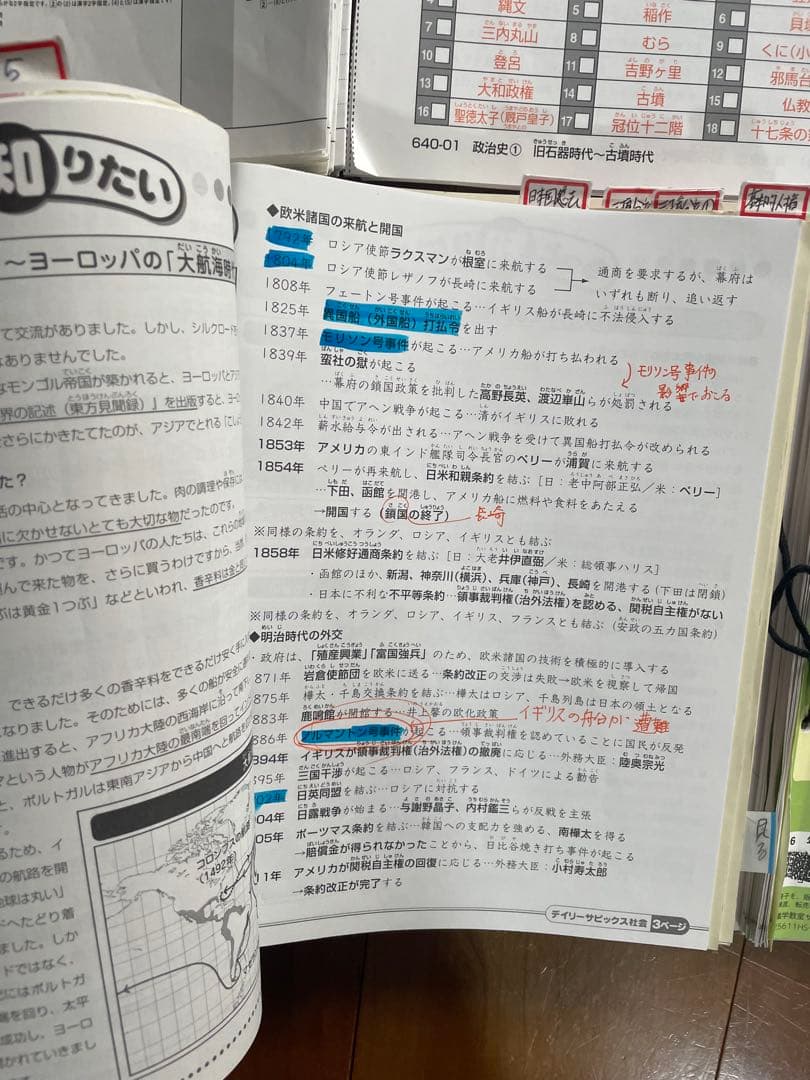 縄文
稲作
6
7
三内丸山
8
むら
9
くに(小
10
登呂
11
吉野ヶ里
12
邪馬台
13
大和政権
14
古墳
15
仏教
16
聖徳太子(厩戸皇子)
17
冠位十二階
18
十七条の
640-01 政治史① 旧石器時代〜古墳時代
知りたい
〜ヨーロッパの「大航海時
て交流がありました。しかし、シルクロード
はありませんでした。
なモンゴル帝国が築かれると、ヨーロッパとアジ
界の記述(東方見聞録)」を出版すると、ヨーロ
をさらにかきたてたのが、アジアでとれる「こしょ
た?
活の中心となってきました。肉の調理や保存に
に欠かせないとても大切な物だったのです。
です。かつてヨーロッパの人たちは、これらの
んで来た物を、さらに買うわけですから、当然
ぶは黄金1つぶ」などといわれ、香辛料は金と
できるだけ多くの香辛料をできるだけ安く手に
なりました。そのためには、多くの船が安全に
進出すると、アフリカ大陸の西海岸に沿って南下
マという人物がアフリカ大陸の最南端を回って
と、ポルトガルは東南アジアから中国へと航路を
るため、イ
の航路を開
地球は丸い」
ドへたどり着
ました。しか
ドではなく、
にはポルトガ
を回り、太平
成功し、ヨーロ
開かれていきまし
コロンブスの航路
(1492年)
◆欧米諸国の来航と開国
1792年 ロシア使節ラクスマンが根室に来航する
1804年 ロシア使節レザノフが長崎に来航する
通商を要求するが、幕府は
いずれも断り、追い返す
1808年 フェートン号事件が起こる…イギリス船が長崎に不法侵入する
1825年 異国船(外国船)打払令を出す
1837年 モリソン号事件が起こる…アメリカ船が打ち払われる
1839年 蛮社の獄が起こる
…幕府の鎖国政策を批判した高野長英、渡辺崋山らが処罰される
モリソン号事件の
影響でおこる
1840年 中国でアヘン戦争が起こる…清がイギリスに敗れる
1842年 薪水給与令が出される…アヘン戦争を受けて異国船打払令が改められる
1853年 アメリカの東インド艦隊司令長官のペリーが浦賀に来航する
1854年 ペリーが再来航し、日米和親条約を結ぶ[日:老中阿部正弘/米:ペリー]
…下田、函館を開港し、アメリカ船に燃料や食料をあたえる
→開国する(鎖国の終了) 長崎
※同様の条約を、オランダ、ロシア、イギリスとも結ぶ
1858年 日米修好通商条約を結ぶ[日:大老井伊直弼/米:総領事ハリス]
・函館のほか、新潟、神奈川(横浜)、兵庫(神戸)、長崎を開港する(下田は閉鎖)
・日本に不利な不平等条約…領事裁判権(治外法権)を認める、関税自主権がない
※同様の条約を、オランダ、ロシア、イギリス、フランスとも結ぶ(安政の五カ国条約)
◆明治時代の外交
・政府は、「殖産興業」「富国強兵」のため、欧米諸国の技術を積極的に導入する
871年 岩倉使節団を欧米に送る…条約改正の交渉は失敗→欧米を視察して帰国
875年 樺太・千島交換条約を結ぶ…樺太はロシア、千島列島は日本の領土となる
883年 鹿鳴館が開館する…井上馨の欧化政策
イギリスの船が 遭難
886年 ノルマントン号事件が起こる…領事裁判権を認めていることに国民が反発
894年 イギリスが領事裁判権(治外法権)の撤廃に応じる…外務大臣:陸奥宗光
895年 三国干渉が起こる…ロシア、フランス、ドイツによる勧告
02年 日英同盟を結ぶ…ロシアに対抗する
04年 日露戦争が始まる…与謝野晶子、内村鑑三らが反戦を主張
05年 ポーツマス条約を結ぶ…韓国への支配力を強める、南樺太を得る
→賠償金が得られなかったことから、日比谷焼き打ち事件が起こる
11年 アメリカが関税自主権の回復に応じる…外務大臣:小村寿太郎
→条約改正が完了する
デイリーサピックス社会 3ページ